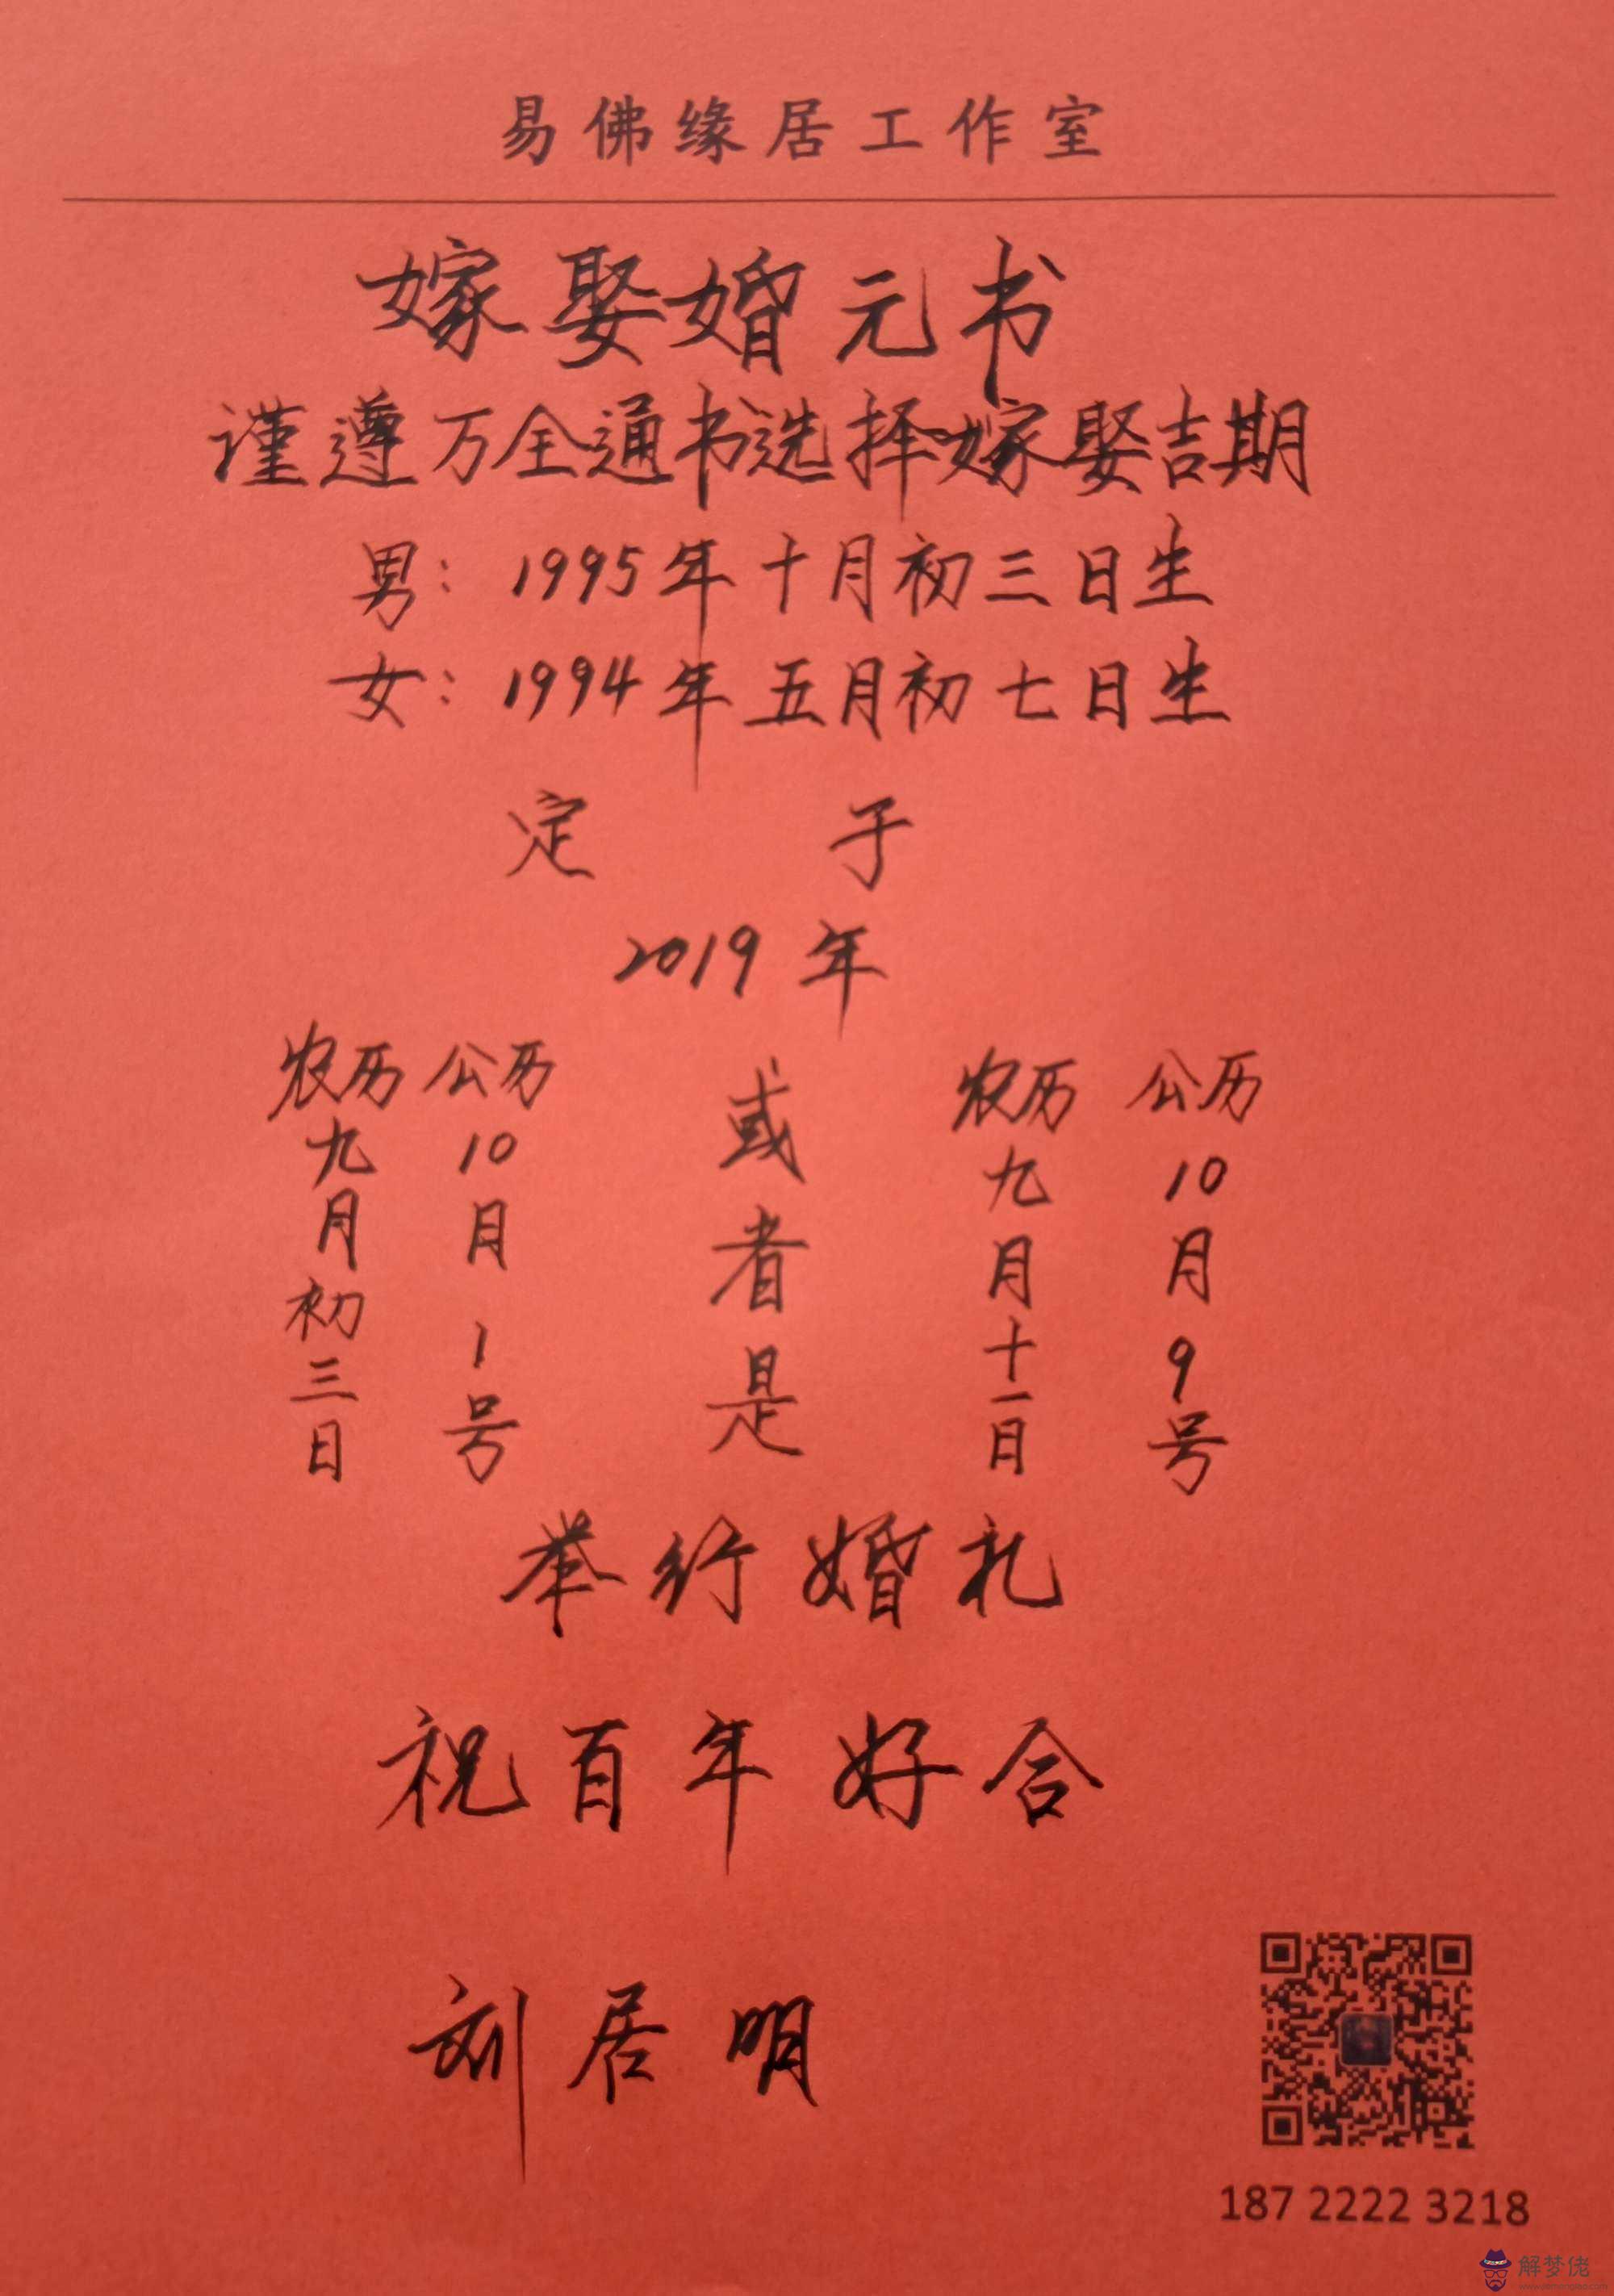 易佛缘居工作室
嫁娶婚元书
谨遵万全通书选择嫁娶吉期
男：1995年十月初三日生
女：1994年五月初七日生
定于
2019年
农历九月初三日
公历10月1号
或者是
农历九月十一日
公历10月9号
举行婚礼
祝百年好合
刘居明
187 2222 3218
解梦佬